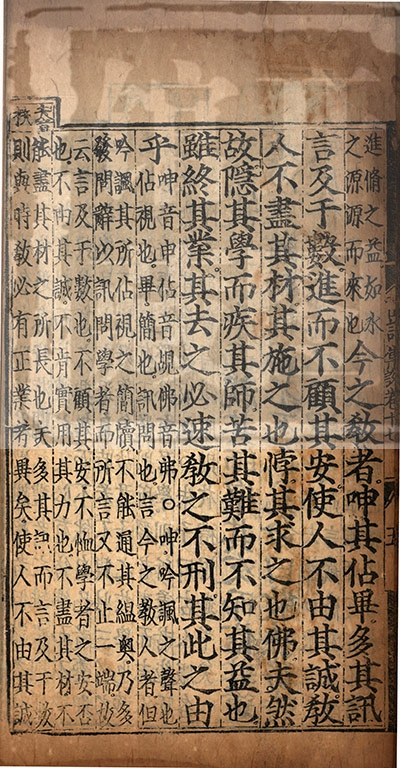 進脩之益如水
之源源而來也
今之教者呻其佔畢多其訊
言及于數進而不顧其安使人不由其誠教
人不盡其材其施之也悖其求之也佛夫然
故隱其學而疾其師苦其難而不知其益也
雖終其業其去之必速教之不刑其此之由
乎
呻音申佔音覘佛音弗○呻吟諷之聲也
佔視也畢簡也訊問也言今之教人者但
吟諷其所佔視之簡牘不能通其緼奧乃多
發問辭以訊問學者而所言又不止一端故
云言及于數也不顧其安不恤學者之安否
也不由其誠不肯實用其力也不盡其材不
能盡其材之所長也夫多其訊而言及于數
則與時教必有正業者異矣使人不由其誠
夫音
扶